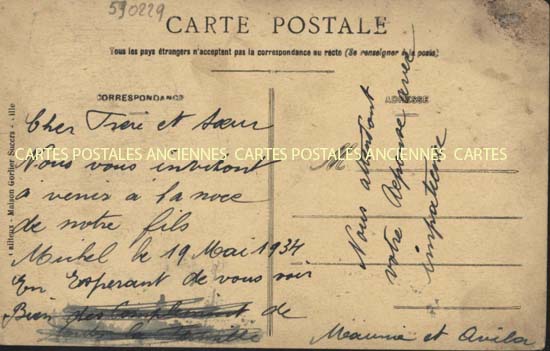 590229
CARTE POSTALE
Tous les pays étrangers n'acceptent pas la correspondance au recto (Se renseigner à la poste)
CORRESPONDANCE
ADRESSE
Cher Frere et sœur
Nous vous invitont
a venir a la noce
de notre fils
Michel le 19 Mai 1934
En Esperant de vous voir
Bien des Compliment de
la famille
Maurice et Avila
M
Nous attentont
votre Reponse avec
impatience
CARTES POSTALES ANCIENNES CARTES POSTALES ANCIENNES CARTES
Maison Gorlier Succrs